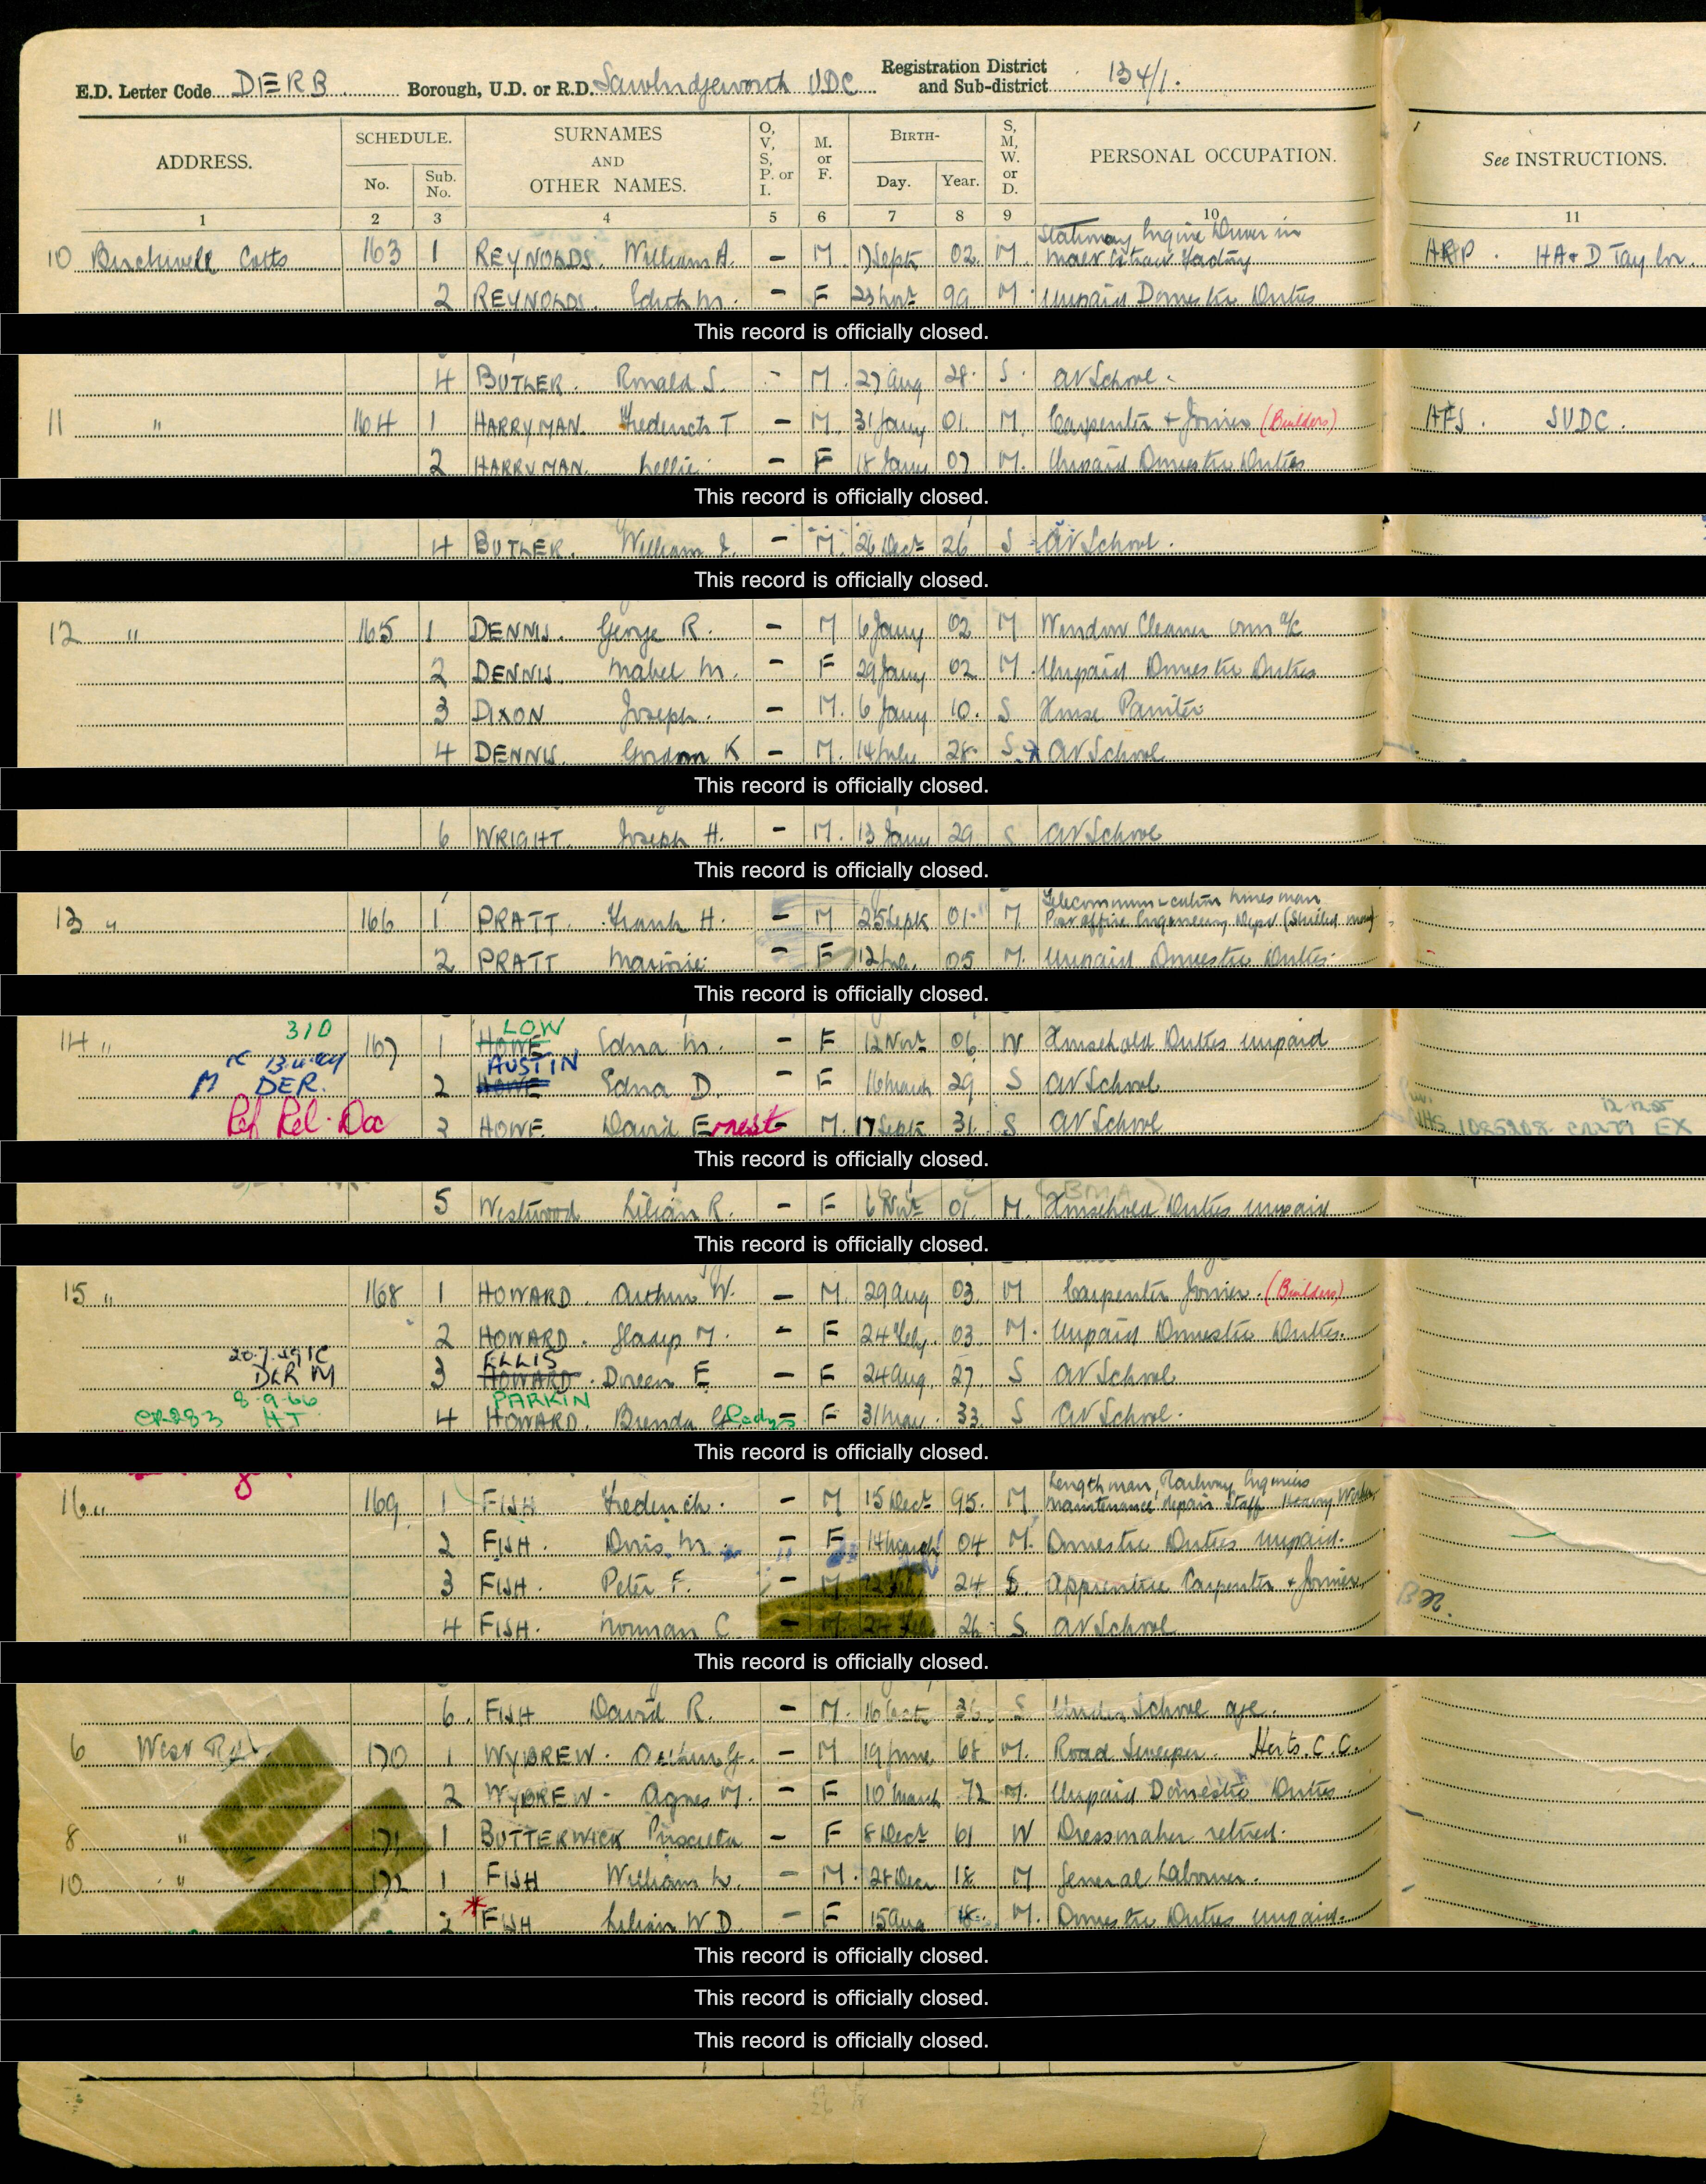 E.D. Letter Code DERB Borough, U.D. or R.D. Sawbridgeworth UDC Registration District and Sub-district 134/1.
ADDRESS. SCHEDULE. No. Sub. No. SURNAMES AND OTHER NAMES. O, V, S, P. or I. M. or F. BIRTH- Day. Year. S, M, W. or D. PERSONAL OCCUPATION. See INSTRUCTIONS.
1 2 3 4 5 6 7 8 9 10 11
Stationary Engine Driver in
10 Cotts 163 1 REYNOLDS. William A. – M 17 Sept 02 M Factory ARP. HA & D Tay Cor.
2 REYNOLDS. Edith M. – F 23 Novr 99 M. Unpaid Domestic Duties
This record is officially closed.
4 BUTLER. Ronald S. – M. 27 Aug 28. S. At School.
11 " 164 1 HARRYMAN. Frederick T – M. 31 Jany 01. M. Carpenter & Joiner (Builders) AFS. SUDC.
2 HARRYMAN. Nellie. – F 18 Jany 07 M. Unpaid Domestic Duties
This record is officially closed.
4 BUTLER. William J. – M. 26 Dect 26 S At School.
This record is officially closed.
12 " 165 1 DENNIS. George R. – M 6 Jany 02 M Window Cleaner own a/c
2 DENNIS. Mabel M. – F 29 Jany 02 M. Unpaid Domestic Duties
3 DIXON Joseph. – M. 6 Jany 10. S House Painter
4 DENNIS. Gordon K – M. 14 July 28. S At School
This record is officially closed.
6 WRIGHT. Joseph H. – M. 13 Jany 29 S At School
This record is officially closed.
Telecommunication Linesman
13 " 166 1 PRATT. Frank H. – M 25 Sept 01. M Post Office Engineering Dept. (Skilled man)
2 PRATT Marjorie. – F 12 July 05 M. Unpaid Domestic Duties.
This record is officially closed.
310 LOW
14 " 167 1 HOWE Edna M. – F 12 Novr 06 W Household Duties unpaid
AUSTIN
M DER. 2 HOWE Edna D. – F 16 March 29 S At School
Ref Rel. Doc 3 HOWE. David Ernest – M. 17 Sept 31. S At School 12.12.55
This record is officially closed.
5 Westwood Lilian R. – F 6 Novr 01. M. Household Duties unpaid
This record is officially closed.
15 " 168 1 HOWARD. Arthur W. – M. 29 Aug 03. M Carpenter Joiner. (Builders)
2 HOWARD. Gladys M. – F 24 Feby. 03 M. Unpaid Domestic Duties.
ELLIS
DER M 3 HOWARD. Doreen E – F 24 Aug. 27 S At School
8.9.66 PARKIN
CR283 HT 4 HOWARD. Brenda Gladys – F 31 May. 33. S At School.
This record is officially closed.
Lengthman, Railway Engineers
16 " 169 1 FISH Frederick. – M 15 Dect 95. M. Maintenance repair Staff Heavy Worker
2 FISH. Doris M. – F 14 March 04 M. Domestic Duties unpaid.
3 FISH. Peter F. – M 24 S. Apprentice Carpenter & Joiner
4 FISH. Norman C. – M. 24 Feb 26. S. At School
This record is officially closed.
6. FISH David R. – M. 16 Oct 36. S Under School age.
6 West Rd. 170 1 WYBREW. – M 19 June 68 M. Road Sweeper. Herts. C.C.
2 WYBREW. Agnes M. – F 10 March 72 M. Unpaid Domestic Duties.
8 " 171 1 BUTTERWICK Priscilla – F 8 Dect 61 W Dressmaker retired.
10 " 172 1 FISH William – M. 28 Dec 18 M General Labourer.
2 FISH Lilian W D – F 15 Aug 18. M. Domestic Duties unpaid.
This record is officially closed.
This record is officially closed.
This record is officially closed.